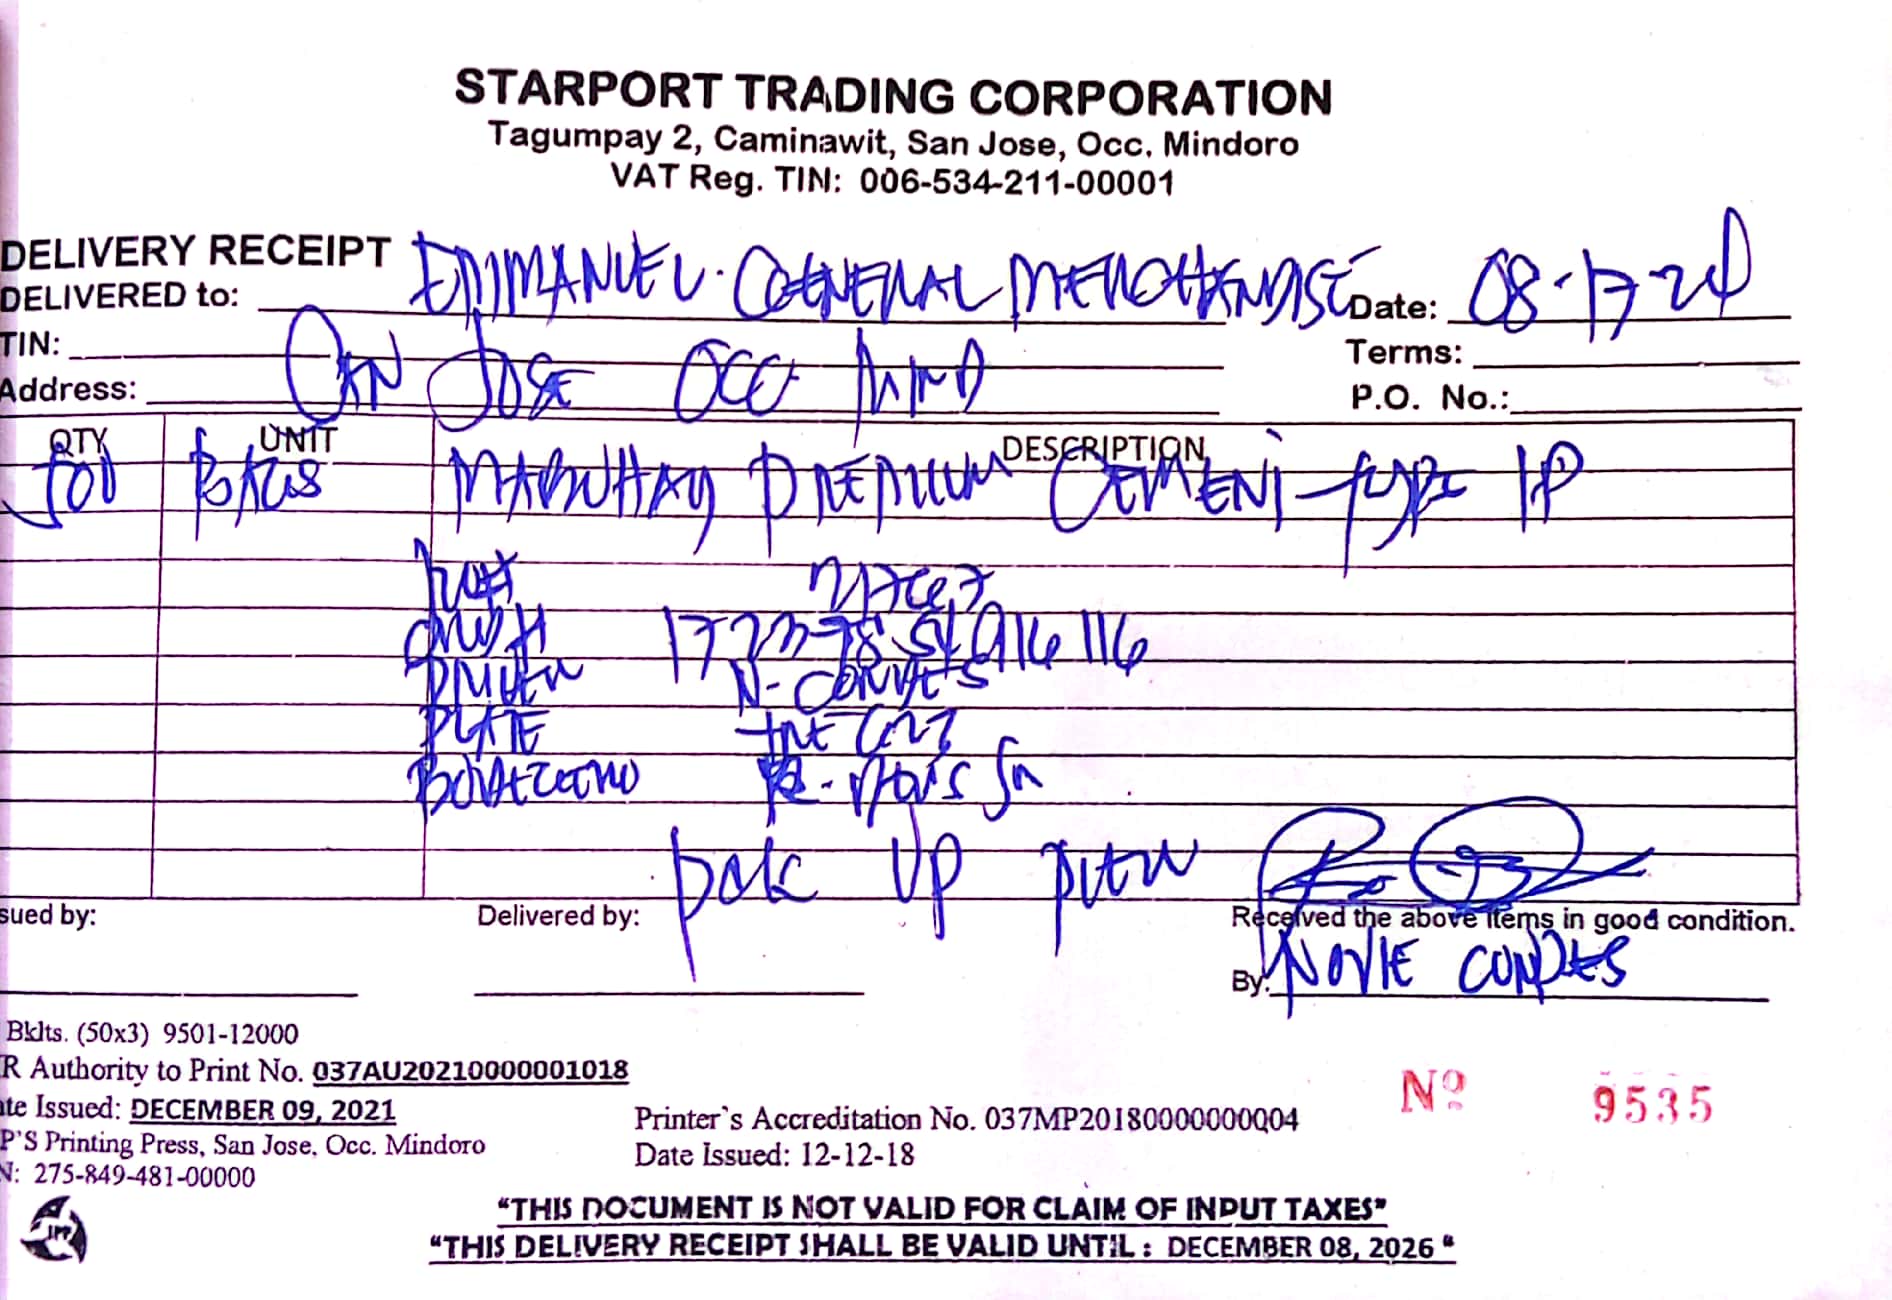 STARPORT TRADING CORPORATION
Tagumpay 2, Caminawit, San Jose, Occ. Mindoro
VAT Reg. TIN: 006-534-211-00001
DELIVERY RECEIPT
DELIVERED to: EMMANUEL GENERAL MERCHANDISE Date: 08-17-24
TIN: Terms:
Address: SAN JOSE OCC MIND P.O. No.:
QTY UNIT DESCRIPTION
500 BAGS MABUHAY PREMIUM CEMENT type 1P
DRIVER N-CONDES
PLATE
pick up
sued by: Delivered by: Received the above items in good condition.
By: NOVIE CONDES
Bklts. (50x3) 9501-12000
R Authority to Print No. 037AU20210000001018
ate Issued: DECEMBER 09, 2021
P'S Printing Press, San Jose, Occ. Mindoro
N: 275-849-481-00000
Printer's Accreditation No. 037MP20180000000004
Date Issued: 12-12-18
Nº 9535
JPP
"THIS DOCUMENT IS NOT VALID FOR CLAIM OF INPUT TAXES"
"THIS DELIVERY RECEIPT SHALL BE VALID UNTIL : DECEMBER 08, 2026 "